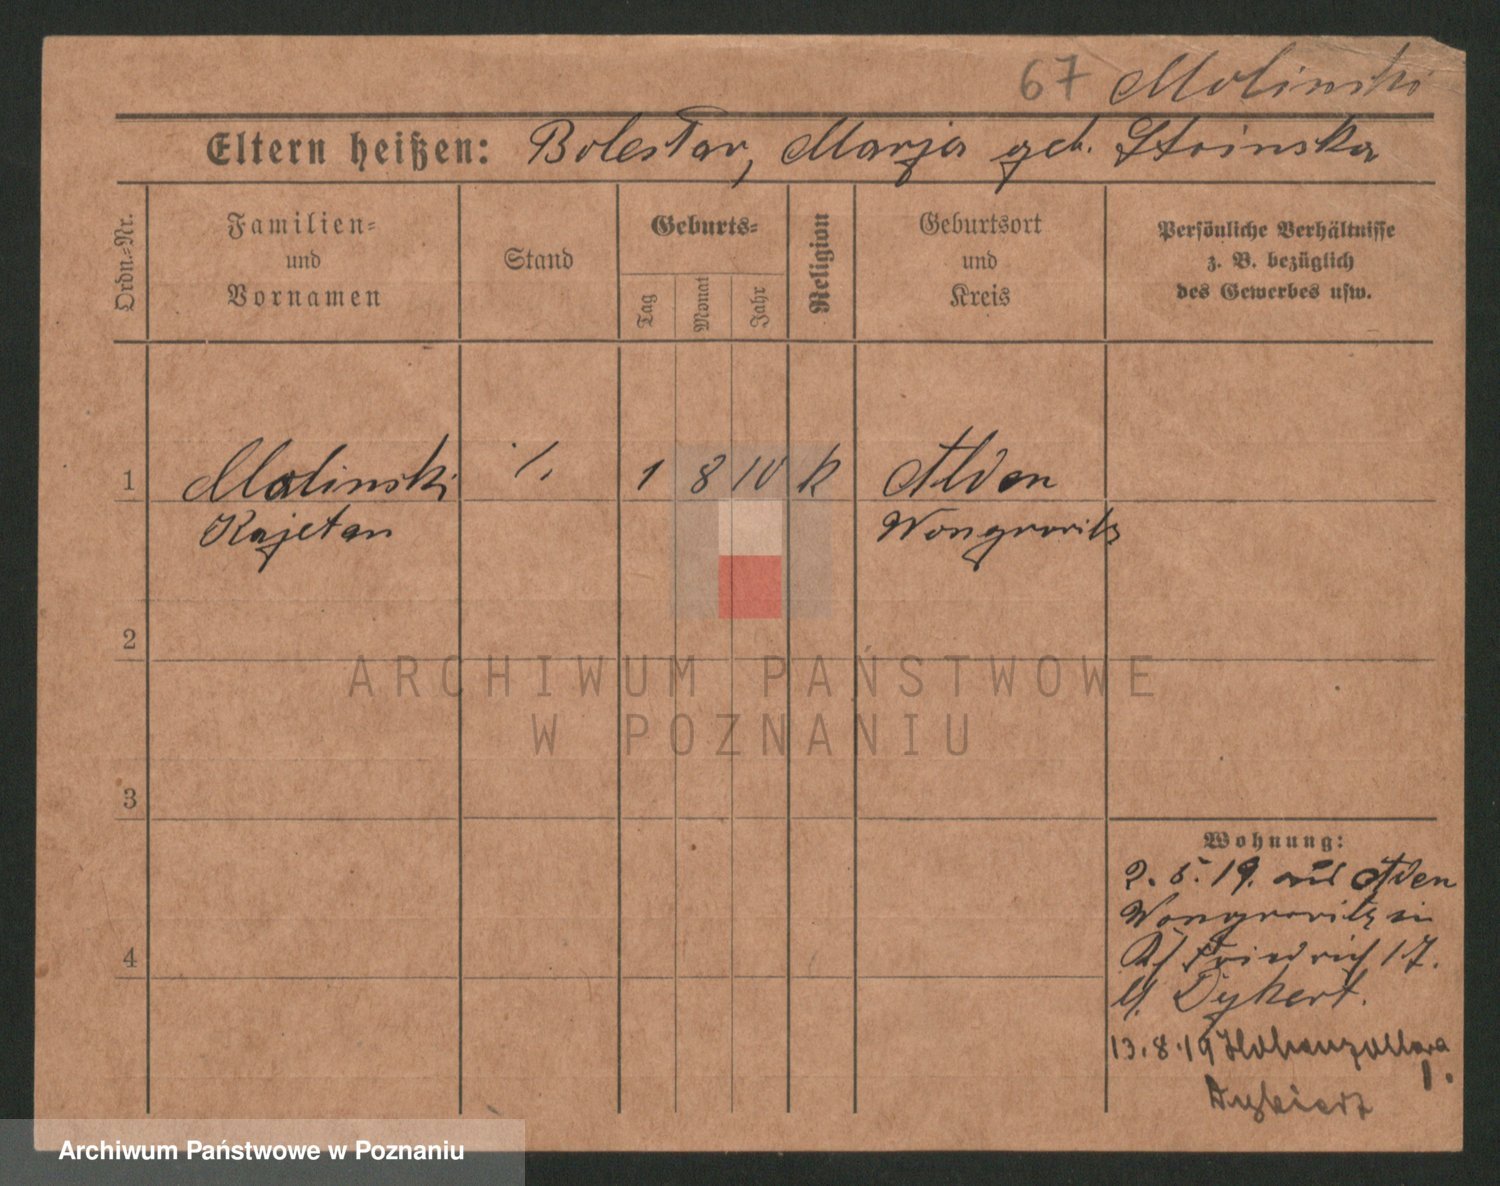 67 Molinski
Eltern heißen: Boleslav, Marja geb. Storinska
Ordn.-Nr.
Familien-
und
Vornamen
Stand
Geburts-
Tag
Monat
Jahr
Religion
Geburtsort
und
Kreis
Persönliche Verhältnisse
z. B. bezüglich
des Gewerbes usw.
1 Molinski ./. 1 8 10 k
Kajetan Wongrowitz
2
ARCHIWUM PAŃSTWOWE
W POZNANIU
3
Wohnung:
2. 5. 19. aus
Wongrowitz in
Friedrich 17.
b/ Dykert.
4
13.8.19 Hohenzollern
1.
Archiwum Państwowe w Poznaniu